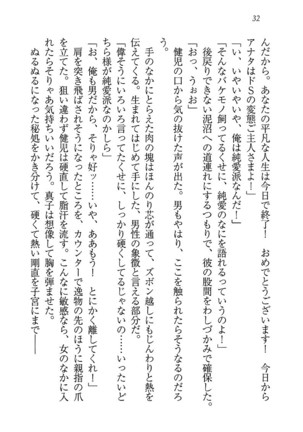 32
んだから。あなたの平凡な人生は今日で終了！　おめでとうございます！　今日から
アナタはドＳの変態ご主人さまよ！」
「い、いやいやいや、俺は純愛派なんだ！」
「そんなバケモノ飼ってるくせに、純愛のなにを語れるっていうのよ！」
後戻りできない泥沼への道連れにするつもりで、彼の股間をわしづかみで確保した。
「おっ、うぉお」
健児の口から気の抜けた声が出た。男もやはり、ここを触られたらそうなるのだろ
うか。
手のなかにあまった肉の塊はほんのり芯が通って、ズボン越しにもじんわりと熱を
伝えてくる。生まれてはじめて手にした、男性の象徴と言える部分だ。
「偉そうにいろいろ言ってたくせに、しっかり硬くしてるじゃないの……いったいど
ちら様が純愛派なのかしら」
「お、俺も男だから、そりゃ好ッ……いや、ああもう！　とにかく離してくれ！」
肩を突き飛ばされそうになったところを、カウンターで逸物の先のほうに親指の爪
を立てた。狙い違わず健児は硬直して脂汗を流す。こんなに敏感なら、女のなかに入
れたらそりゃあ気持ちいいだろう。真子は想像して胸を弾ませた。
ぬるぬるになった秘処をかき分けて、硬くて熱い剛直を子宮にまで――